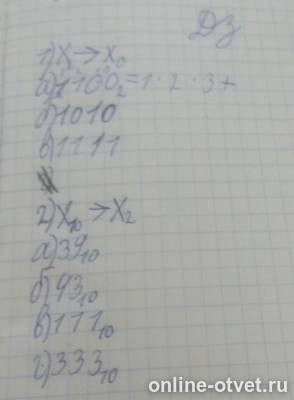 Дз
1) X → X₀
а) 1100₂=1·2·3+
б) 1010
в) 1111
2) X₁₀ → X₂
а) 39₁₀
б) 43₁₀
в) 111₁₀
г) 333₁₀
online-otvet.ru